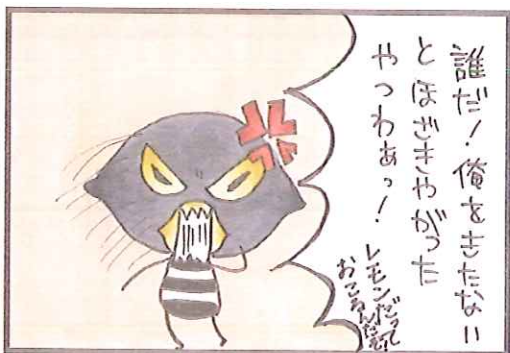 誰だ!俺をきたない
とほざきやがった
やつわぁっ!
レモンだって
おこるんだぞ